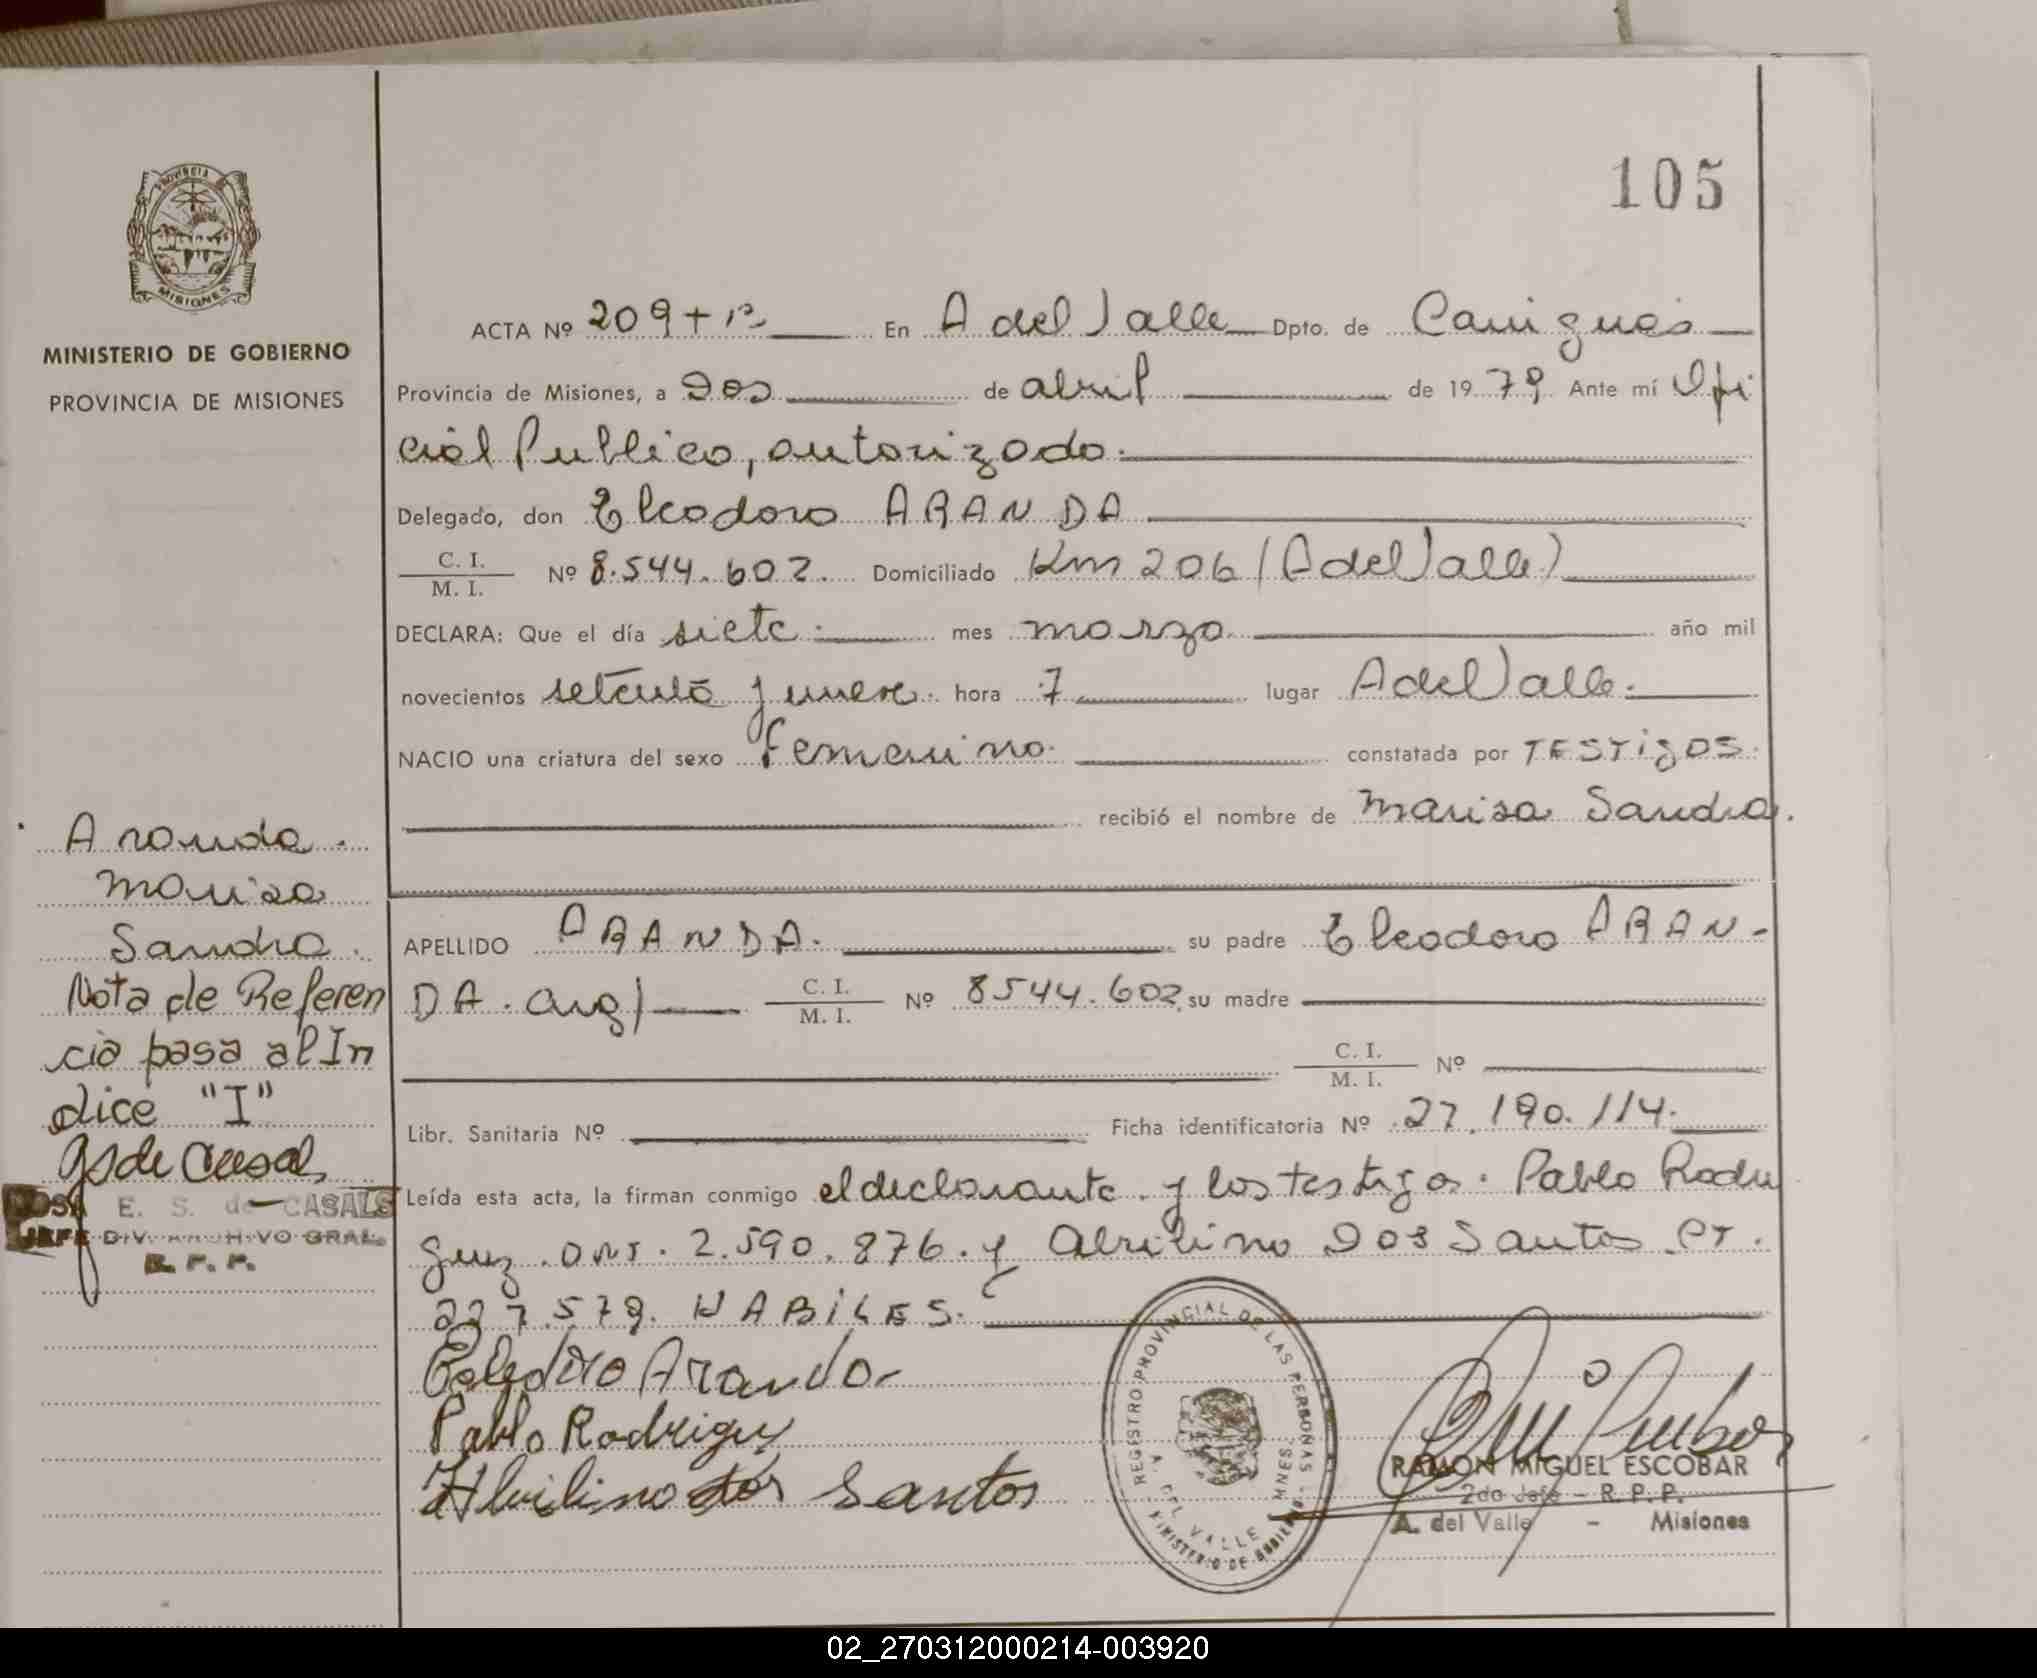 105
PROVINCIA DE
MISIONES
MINISTERIO DE GOBIERNO
PROVINCIA DE MISIONES
ACTA Nº 209 + En A del Valle Dpto. de Cainguás
Provincia de Misiones, a Dos de abril de 1979 Ante mí Ofi
cial Publico, autorizado.
Delegado, don Eleodoro ARANDA
C. I.
M. I. Nº 8.544.602. Domiciliado Km 206 (A del Valle)
DECLARA: Que el día siete. mes marzo año mil
novecientos setenta y nueve. hora 7 lugar A del Valle.
NACIO una criatura del sexo femenino. constatada por TESTigOS.
recibió el nombre de Marisa Sandra.
Aranda.
Marisa
Sandra.
Nota de Referen
cia pasa al In
dice "I"
ROSA E. S. de CASALS
JEFE DIV. ARCHIVO GRAL.
R. P. P.
APELLIDO ARANDA. su padre Eleodoro ARAN-
DA. arg/ C. I.
M. I. Nº 8544.602, su madre
C. I.
M. I. Nº
Libr. Sanitaria Nº Ficha identificatoria Nº 27.190.114.
Leída esta acta, la firman conmigo el declarante. y los testigos. Pablo Rodri
guez. DNI. 2.590.876. y Albilino Dos Santos
227.579. HABILES.
Pablo Rodriguez
Albilino dos Santos
REGISTRO PROVINCIAL DE LAS PERSONAS
A. DEL VALLE
MINISTERIO DE GOBIERNO
RAMON MIGUEL ESCOBAR
2do Jefe - R. P. P.
A. del Valle - Misiones
02_270312000214-003920